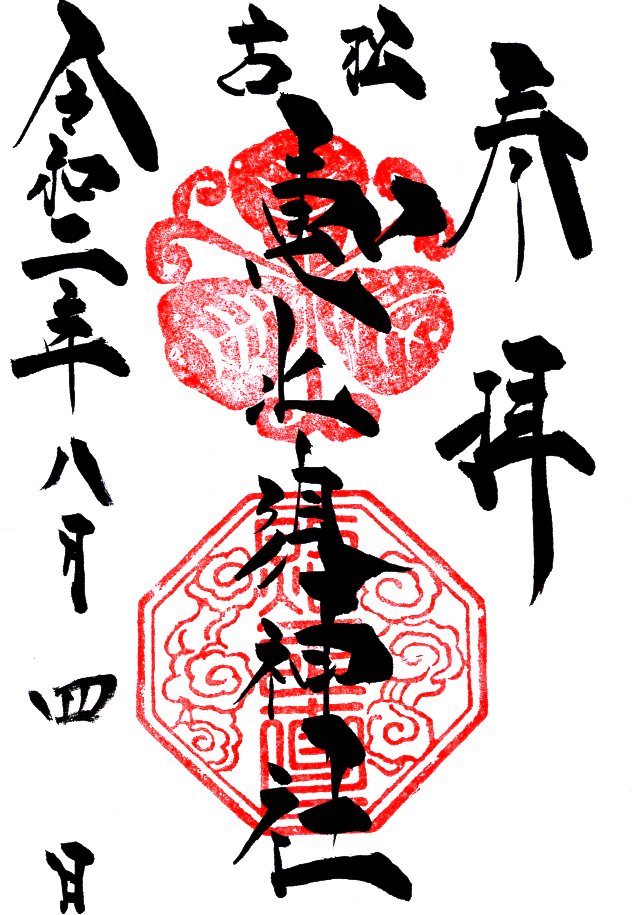 奉拝
松古
恵比須神社
令和二年八月四日